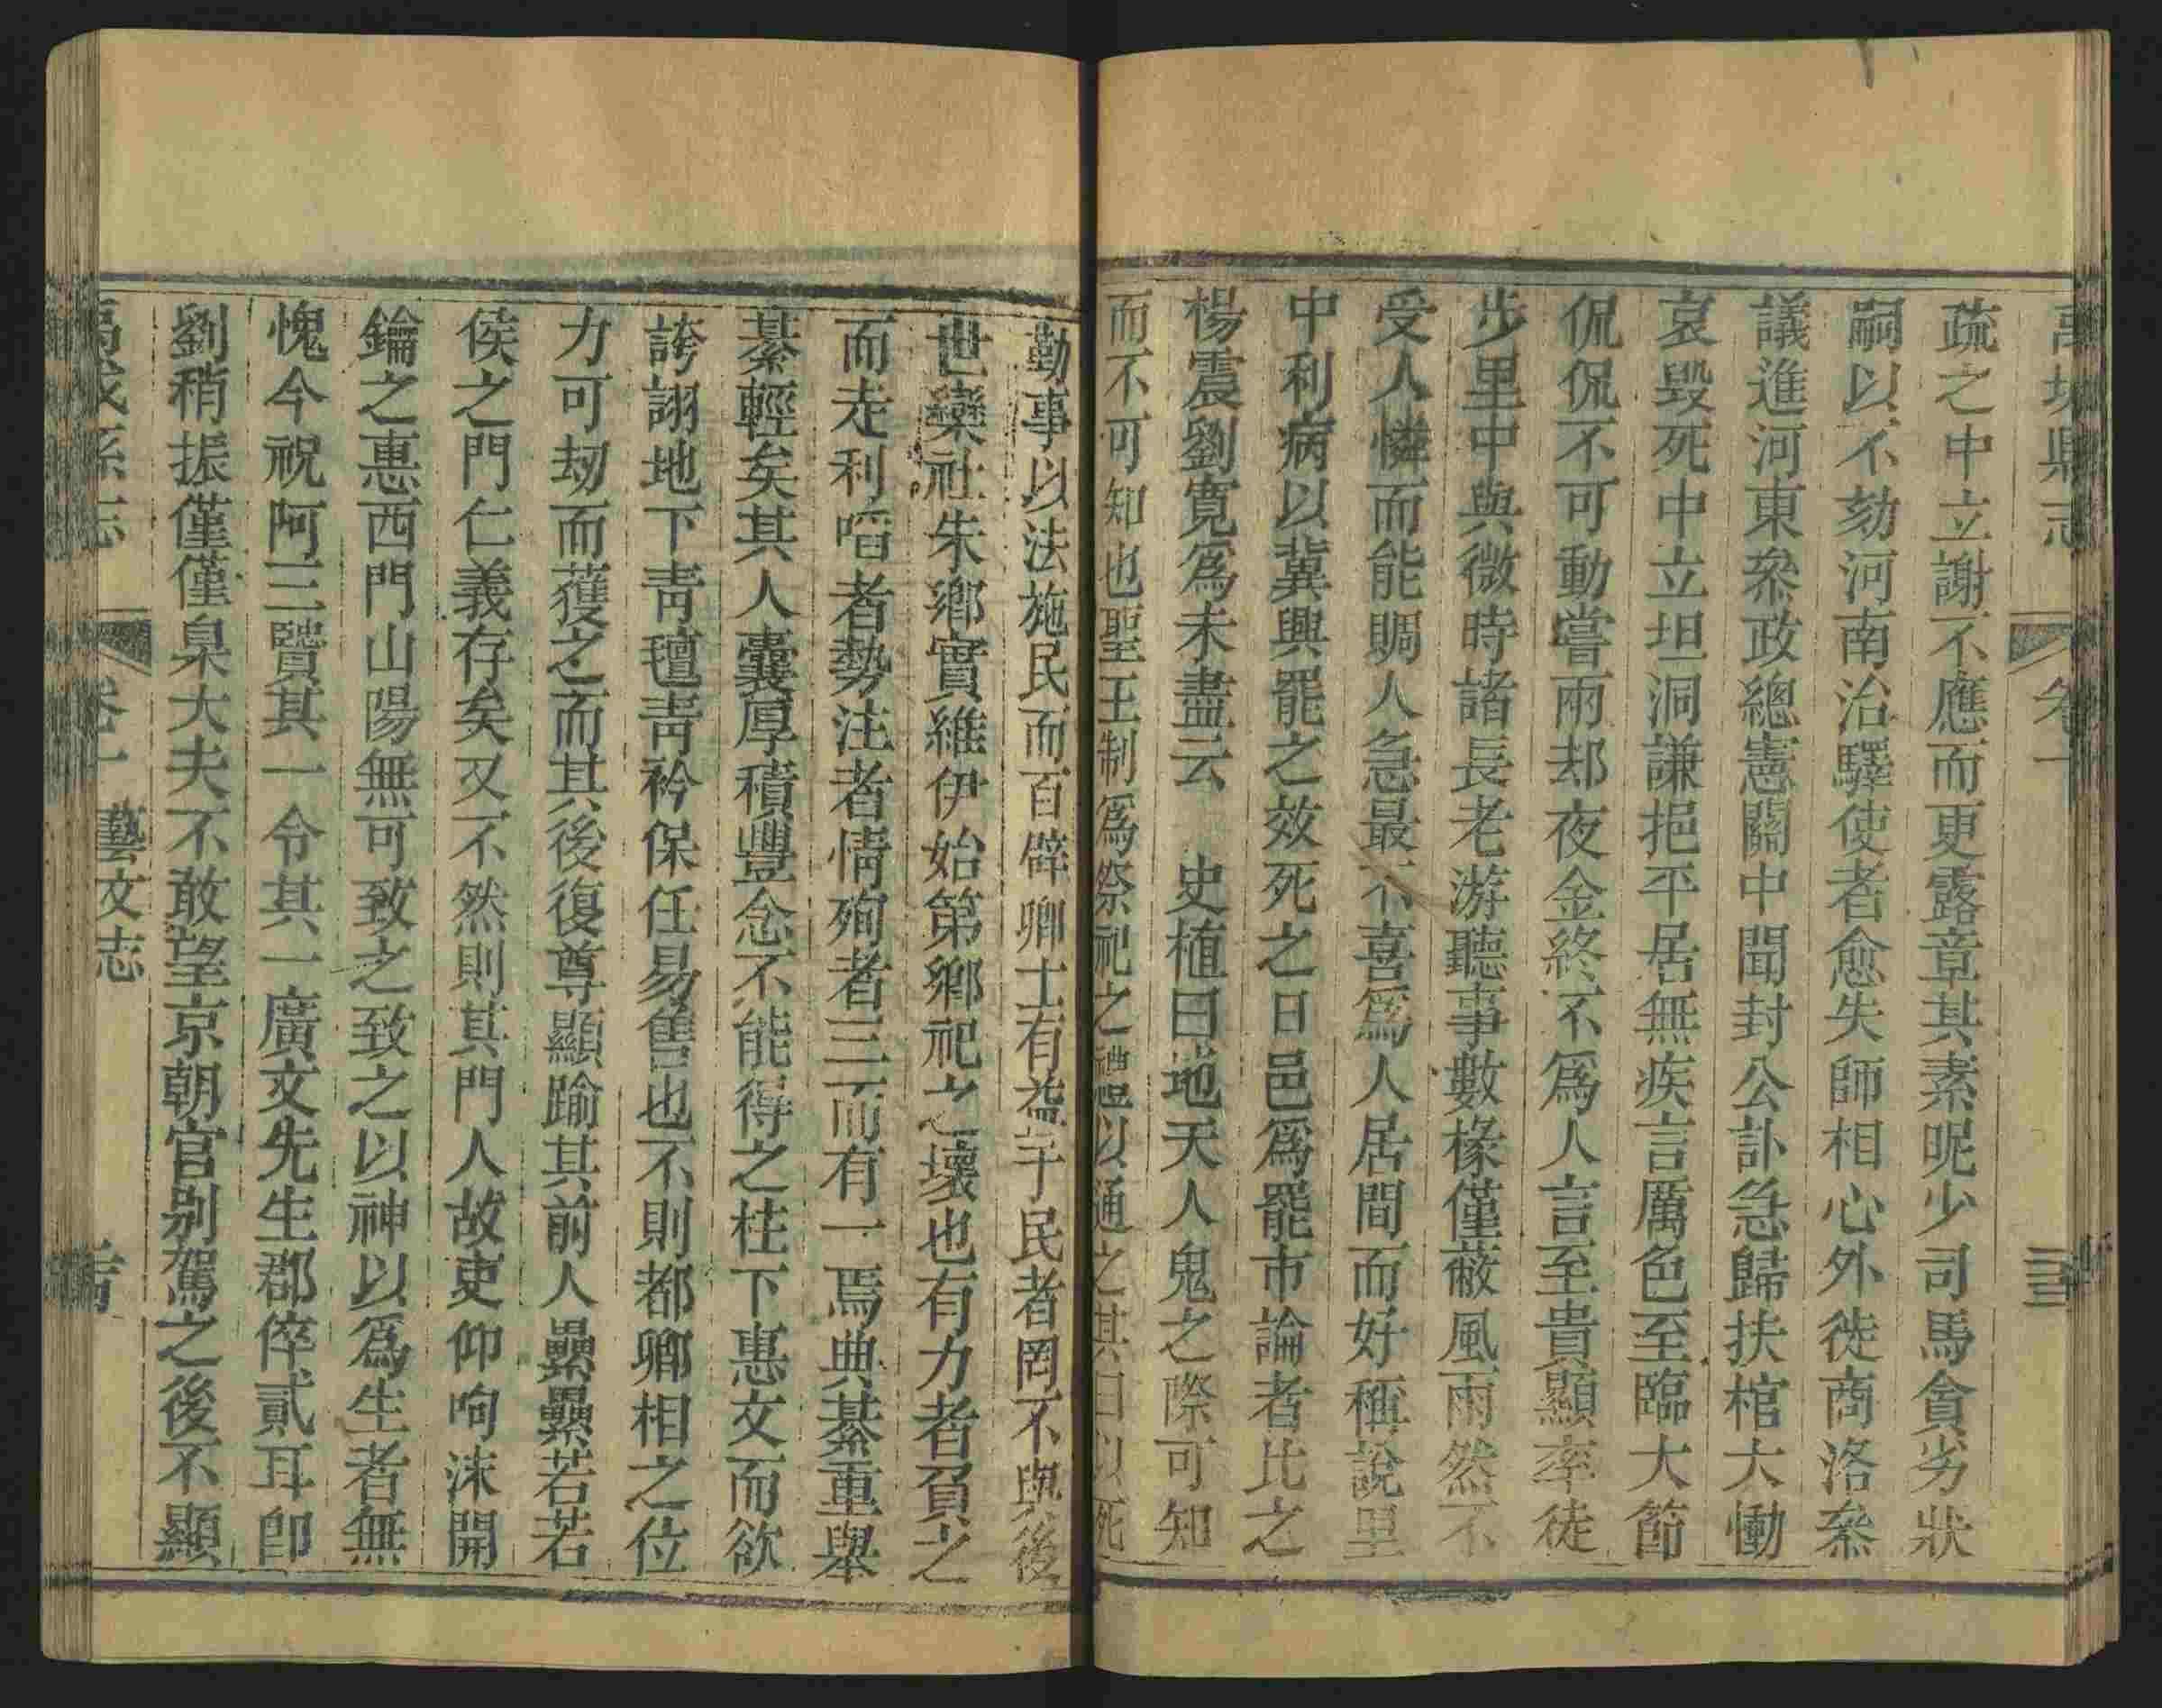 禹城縣志 卷十 三
疏之中立謝不應而更露章其素呢少司馬貪劣狀
嗣以不劾河南治驛使者愈失師相心外徙商洛叅
議進河東叅政總憲關中聞封公訃急歸扶棺大慟
哀毀死中立坦洞謙挹平居無疾言厲色至臨大節
侃侃不可動嘗兩却夜金終不爲人言至貴顯率徒
步里中與微時諸長老游聽事數椽僅蔽風雨然不
受人憐而能賙人急最不喜爲人居間而好稱說里
中利病以冀興罷之效死之日邑爲罷市論者比之
楊震劉寛爲未盡云 史植曰地天人鬼之際可知
而不可知也聖王制爲祭祀之禮以通之其曰以死
勤事以法施民而百僻卿士有益于民者罔不與後
世欒社朱鄉實維伊始第鄉祀之壞也有力者負之
而走利啗者勢注者情殉者三而有一焉典綦重舉
綦輕矣其人囊厚積豐念不能得之柱下惠文而欲
誇詡地下靑氊靑衿保任易售也不則都卿相之位
力可刼而獲之而其後復尊顯踰其前人纍纍若若
侯之門仁義存矣又不然則其門人故吏仰呴沫開
鑰之惠西門山陽無可致之致之以神以爲生者無
愧今祝阿三賢其一令其一廣文先生郡倅貳耳卽
劉稍振僅僅臬大夫不敢望京朝官别駕之後不顯
禹城縣志 卷十 藝文志